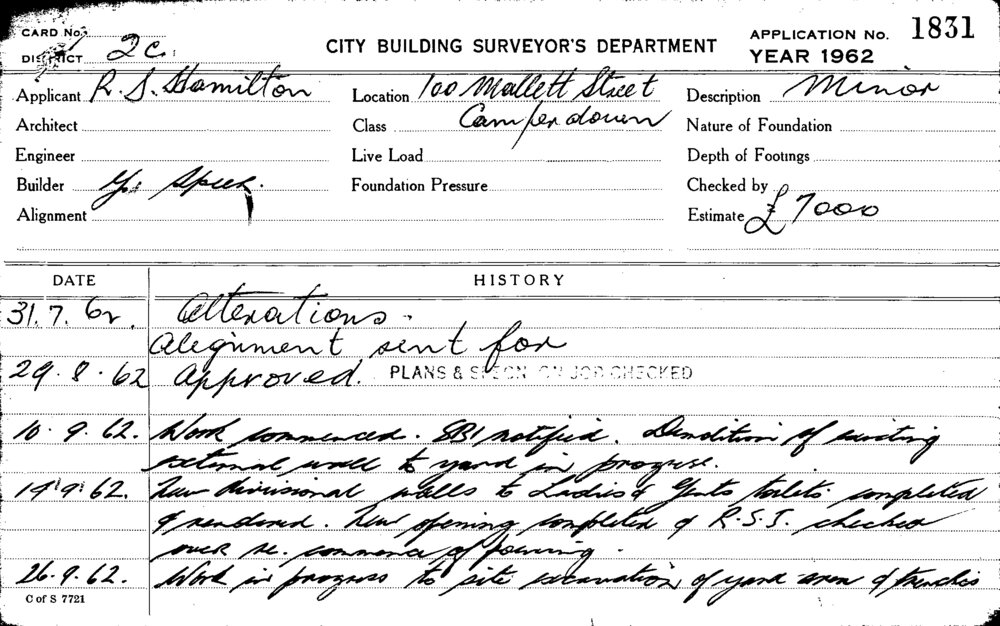 CARD No.
DISTRICT 2C.
CITY BUILDING SURVEYOR'S DEPARTMENT
APPLICATION No. 1831
YEAR 1962
Applicant R. S. Hamilton
Location 100 Mallett Street
Description Minor
Architect
Class Camperdown
Nature of Foundation
Engineer
Live Load
Depth of Footings
Builder
Foundation Pressure
Checked by
Alignment
Estimate £7000
DATE HISTORY
31.7.62. Alterations.
Alegnment sent for
29.8.62 Approved. PLANS & SPECN ON JOB CHECKED
10.9.62. Work commenced. SBI notified. Demolition of existing
external wall to yard in progress.
19.9.62. New divisional walls to Ladies & Gents toilets completed
& rendered. New opening completed & R.S.J. checked
over
26.9.62. Work in progress to site excavation of yard area & trenches
C of S 7721